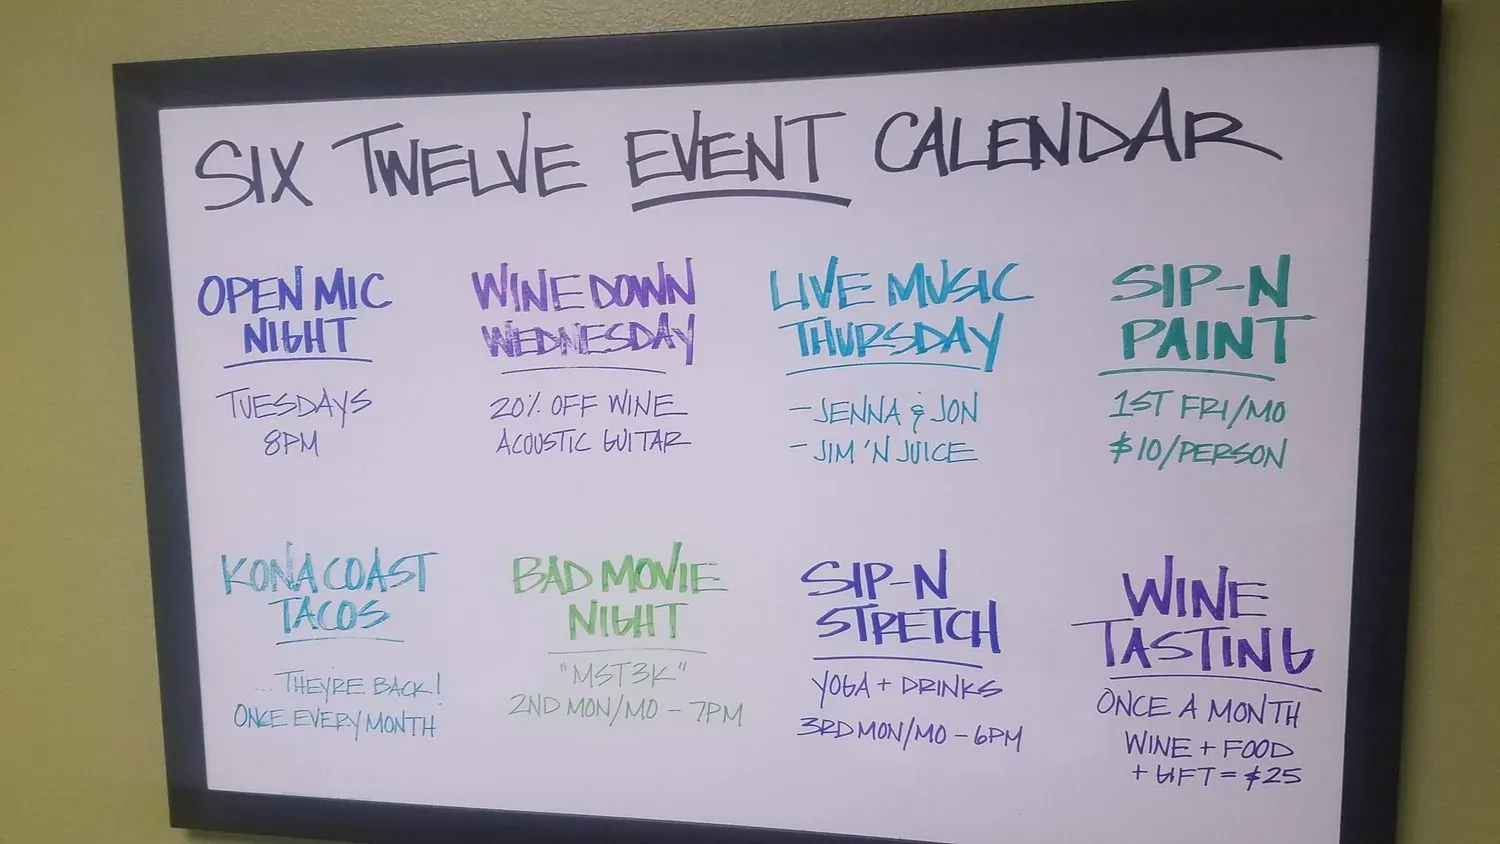 SIX TWELVE EVENT CALENDAR
OPEN MIC
NIGHT
TUESDAYS
8PM
WINE DOWN
WEDNESDAY
20% OFF WINE
ACOUSTIC GUITAR
LIVE MUSIC
THURSDAY
- JENNA & JON
- JIM 'N JUICE
SIP-N
PAINT
1ST FRI/MO
$10/PERSON
KONA COAST
TACOS
...THEY'RE BACK!
ONCE EVERY MONTH
BAD MOVIE
NIGHT
"MST3K"
2ND MON/MO - 7PM
SIP-N
STRETCH
YOGA + DRINKS
3RD MON/MO - 6PM
WINE
TASTING
ONCE A MONTH
WINE + FOOD
+ GIFT = $25